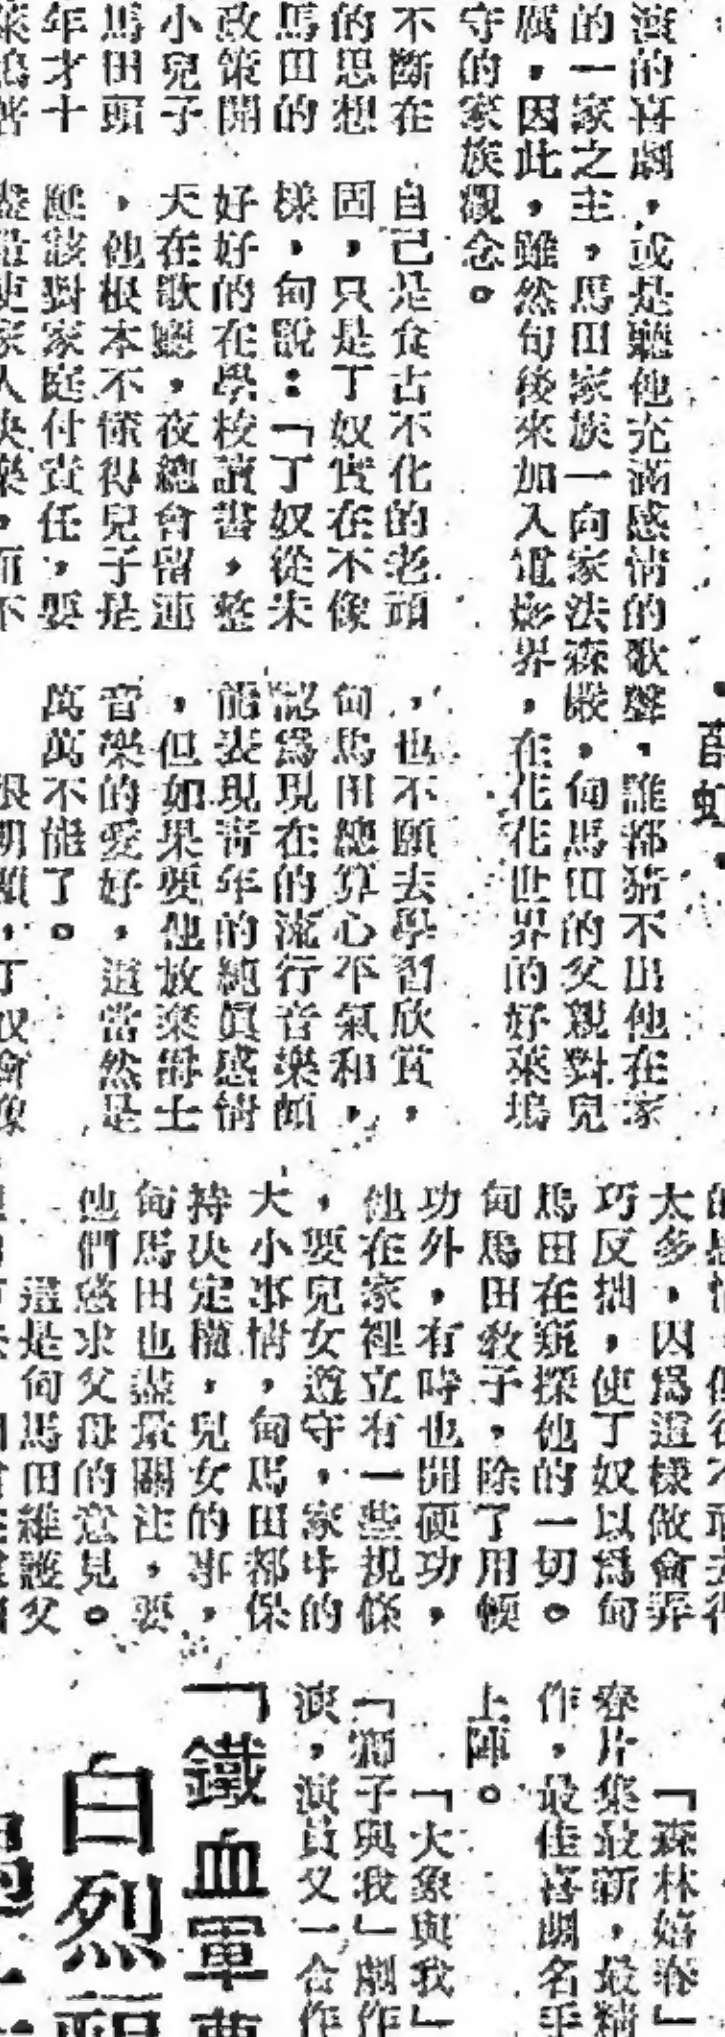 演的喜劇,或是聽他充滿感情的歌聲,誰都猜不出他在家
的一家之主,馬田家族一向家法森嚴,甸馬田的父親對兒
厲,因此,雖然甸後來加入電影界,在花花世界的好萊塢
守的家族觀念。
不斷在
的思想
馬田的
政策開
小兒子
馬田頭
年才十
自己是食古不化的老頑
固,只是丁奴實在不像
樣,甸說:「丁奴從未
好好的在學校讀書,整
天在歌廳,夜總會留連
,他根本不懂得兒子是
應該對家庭付責任,要
盡量使家人快樂,而不
,也不願去學習欣賞,
甸馬田總算心平氣和,
認爲現在的流行音樂頗
能表現青年的純眞感情
,但如果要他放棄爵士
音樂的愛好,這當然是
萬萬不能了。
太多,因爲這樣做會弄
巧反拙,使丁奴以爲甸
馬田在窺探他的一切。
甸馬田敎子,除了用輭
功外,有時也開硬功,
他在家裡立有一些規條
,要兒女遵守,家中的
大小事情,甸馬田都保
持决定權,兒女的事,
甸馬田也盡最關注,要
他們慈求父母的意見。
這是甸馬田維護父
「森林嬉春」
春片集最新,最精
作,最佳喜劇名手
上陣。
「大象與我」
「獅子與我」劇作
演,演員又一合作
「鐵血軍
白烈